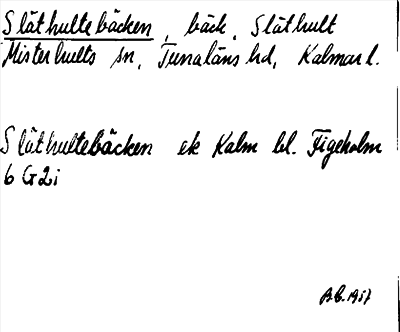 Släthultebäcken, bäck, Släthult
Misterhults sn, Tunaläns hd, Kalmar l.
Släthultebäcken ek Kalm bl. Figeholm
6 G2i
A.B. 1957